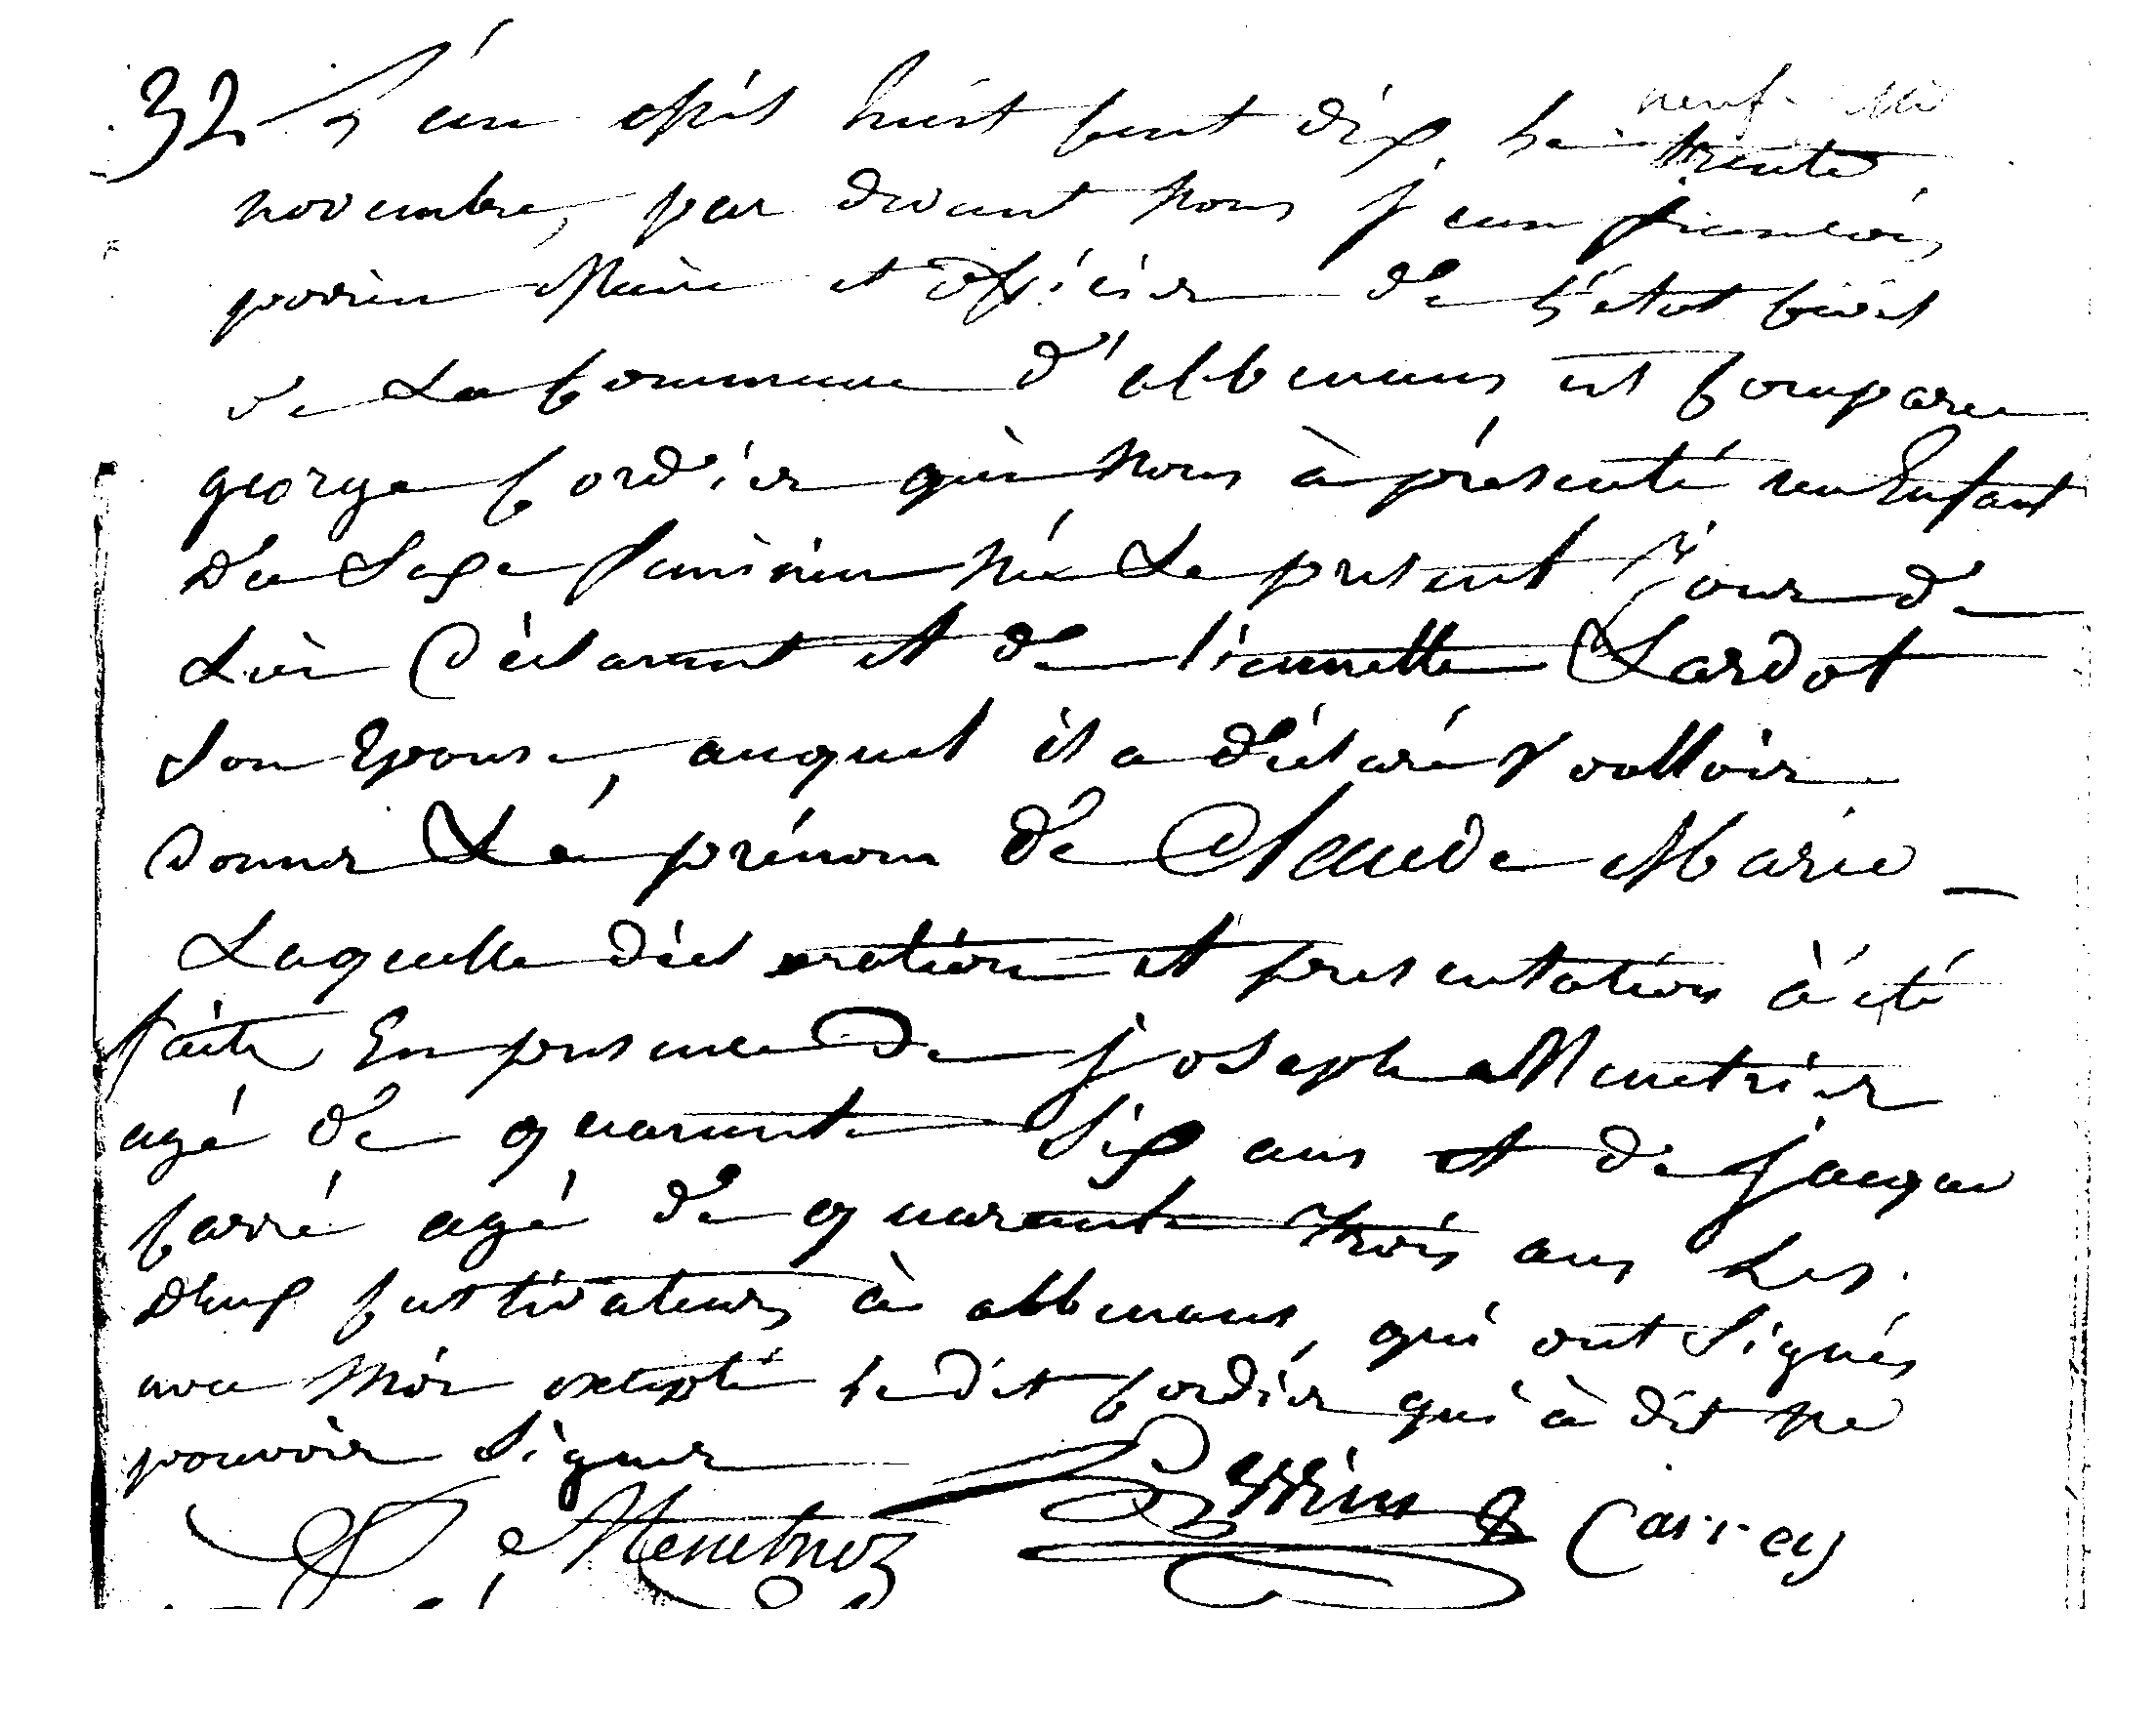 32 L'an mil huit cent dix le trente neuf
novembre, par devant nous jean francois
maire et officier de l'état civil
de La commune d'abbenans est comparu
george cordier qui nous à présenté un Enfant
du Sexe feminin née Le present jour de
Lui Déclarant et de Lardot
son Epouse, auquel il a déclaré voulloir
Donner Lé prénom de Claude Marie -
Laquelle déclaration et presentation à été
faite En presence de joseph Menetrier
agé de quarante Six ans et de jaque
carré agé de quarante trois ans Les
deux cultivateurs à abbenans, qui ont signés
avec moi excepté le dit cordier qui à dit ne
pouvoir signer
Menetrez Carrey